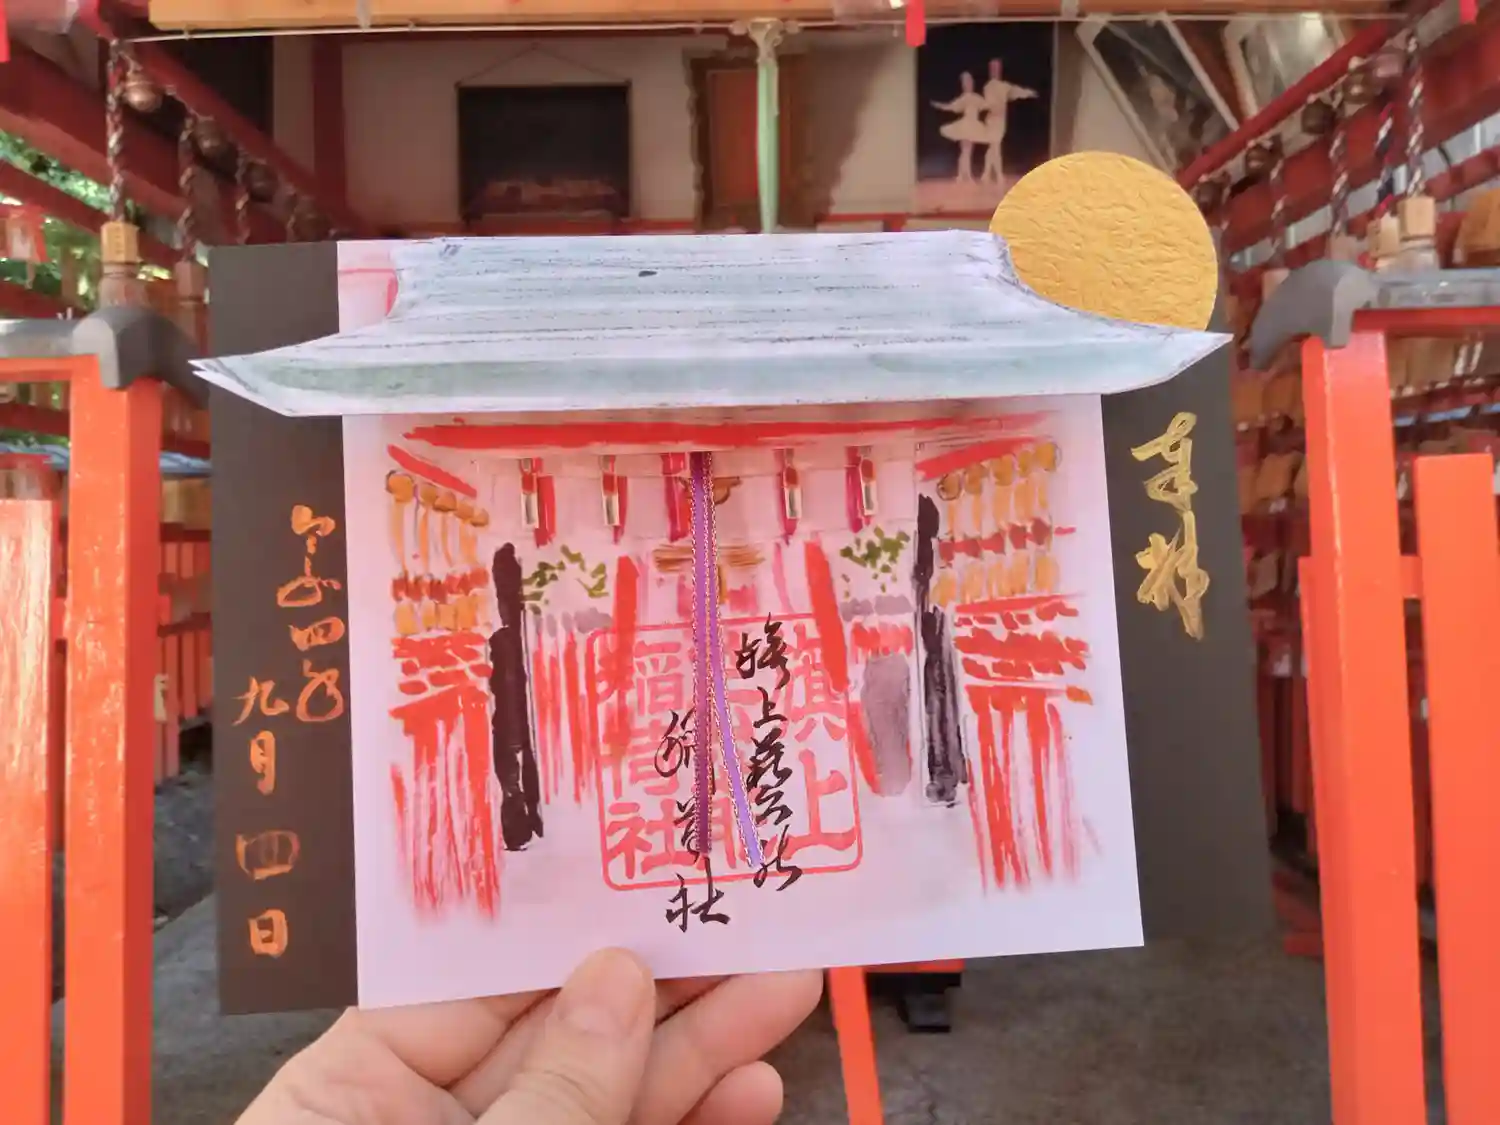 奉拝
旗上芸能
稲荷社
旗上
稲荷社
令和四年
九月四日